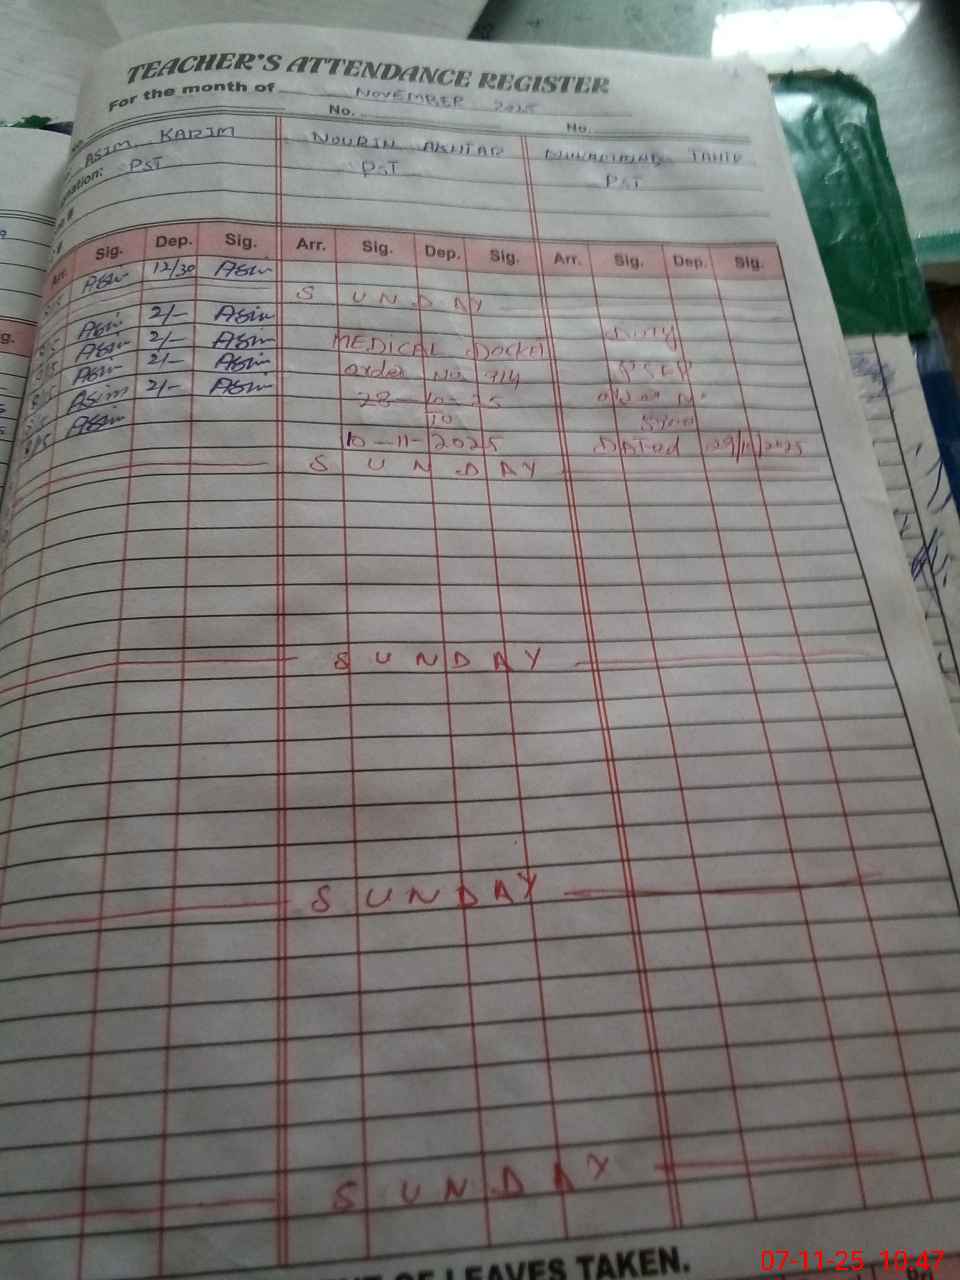 TEACHER'S ATTENDANCE REGISTER
For the month of NOVEMBER 2025
No. No.
ASIM KARIM NOURIN AKHTAR MUHAMMAD TAHIR
nation: PST PST PST
Arr. Sig. Dep. Sig. Arr. Sig. Dep. Sig. Arr. Sig. Dep. Sig.
Asim 12/30 Asim
SUNDAY
Asim 2/- Asim Duty
Asim 2/- Asim MEDICAL
Asim 2/- Asim order No 914
Asim 2/- Asim 28-10-25
Asim To
10-11-2025 DATED
SUNDAY
SUNDAY
SUNDAY
SUNDAY
OF LEAVES TAKEN.
07-11-25 10:47